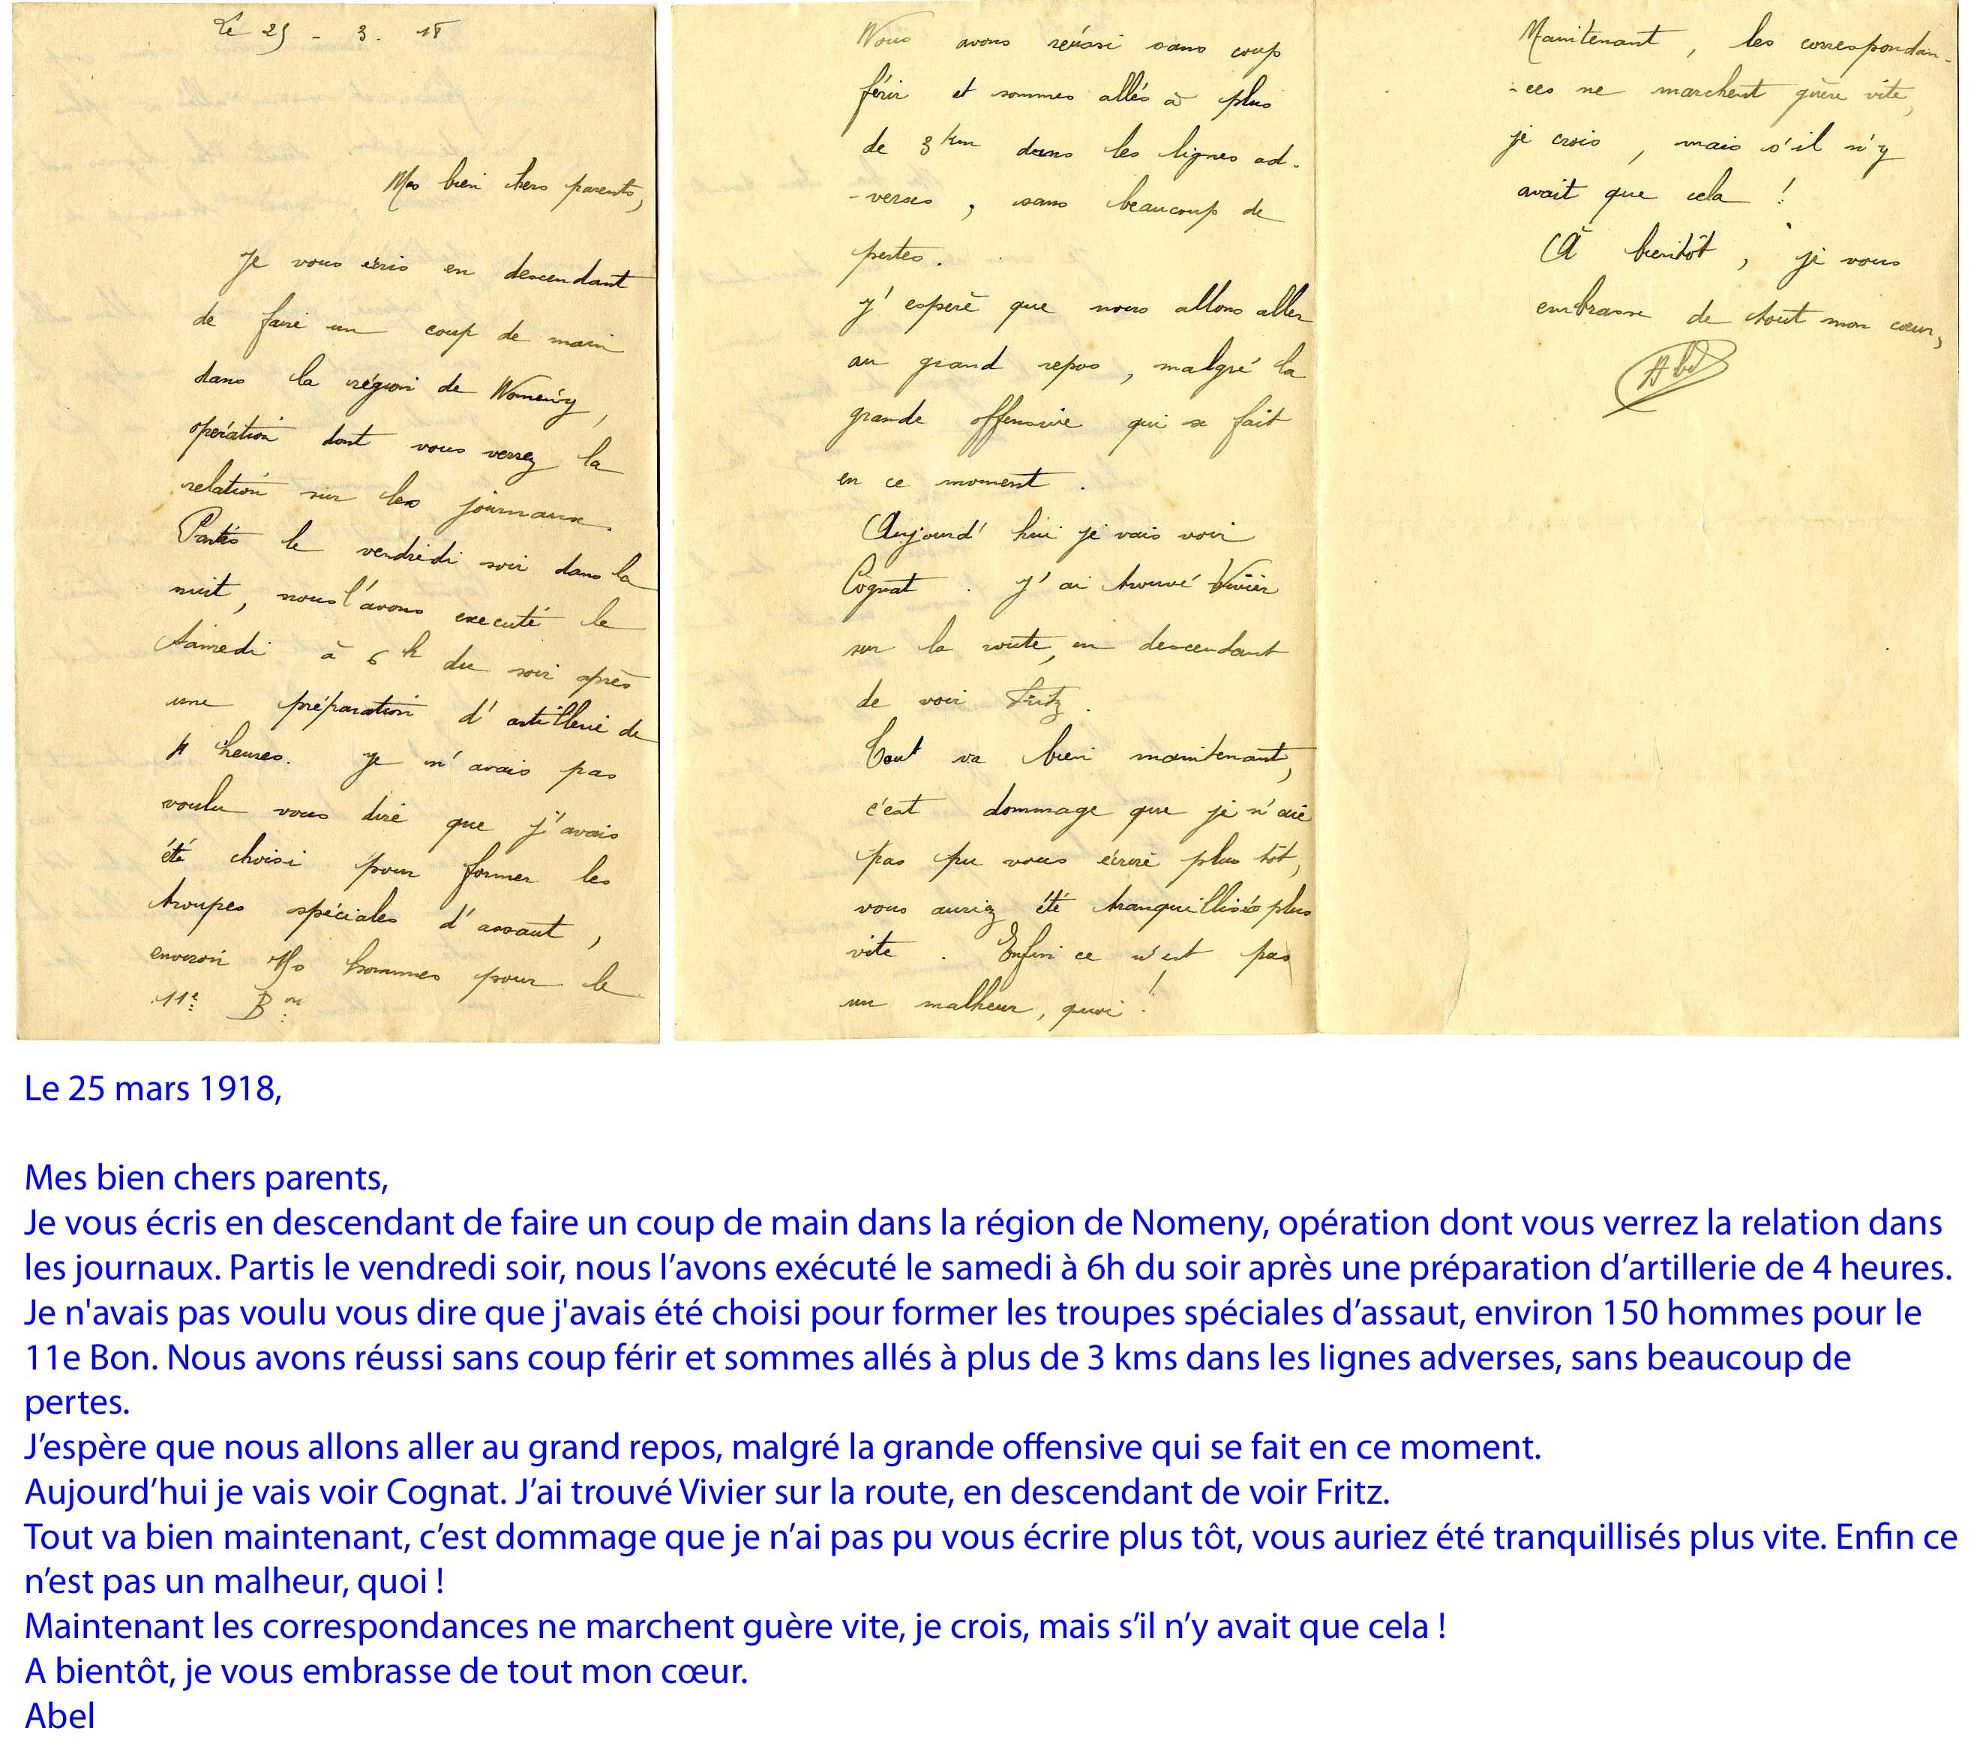 Le 25 - 3 - 18
Mes bien chers parents,
Je vous écris en descendant
de faire un coup de main
dans la région de Nomeny,
opération dont vous verrez la
relation sur les journaux.
Partis le vendredi soir dans la
nuit, nous l'avons executé le
samedi à 6 h du soir après
une préparation d'artillerie de
4 heures. Je n'avais pas
voulu vous dire que j'avais
été choisi pour former les
troupes spéciales d'assaut,
environ 150 hommes pour le
11e Bon
Nous avons réussi sans coup
férir et sommes allés à plus
de 3 km dans les lignes ad-
-verses, sans beaucoup de
pertes.
J'espère que nous allons aller
au grand repos, malgré la
grande offensive qui se fait
en ce moment.
Aujourd'hui je vais voir
Cognat. J'ai trouvé Vivier
sur la route, en descendant
de voir Fritz.
Tout va bien maintenant,
c'est dommage que je n'aie
pas pu vous écrire plus tôt,
vous auriez été tranquillisés plus
vite. Enfin ce n'est pas
un malheur, quoi !
Maintenant, les correspondan-
-ces ne marchent guère vite,
je crois, mais s'il n'y
avait que cela !
A bientôt, je vous
embrasse de tout mon cœur,
Abel
Le 25 mars 1918,
Mes bien chers parents,
Je vous écris en descendant de faire un coup de main dans la région de Nomeny, opération dont vous verrez la relation dans
les journaux. Partis le vendredi soir, nous l’avons exécuté le samedi à 6h du soir après une préparation d’artillerie de 4 heures.
Je n'avais pas voulu vous dire que j'avais été choisi pour former les troupes spéciales d’assaut, environ 150 hommes pour le
11e Bon. Nous avons réussi sans coup férir et sommes allés à plus de 3 kms dans les lignes adverses, sans beaucoup de
pertes.
J’espère que nous allons aller au grand repos, malgré la grande offensive qui se fait en ce moment.
Aujourd’hui je vais voir Cognat. J’ai trouvé Vivier sur la route, en descendant de voir Fritz.
Tout va bien maintenant, c’est dommage que je n’ai pas pu vous écrire plus tôt, vous auriez été tranquillisés plus vite. Enfin ce
n’est pas un malheur, quoi !
Maintenant les correspondances ne marchent guère vite, je crois, mais s’il n’y avait que cela !
A bientôt, je vous embrasse de tout mon cœur.
Abel